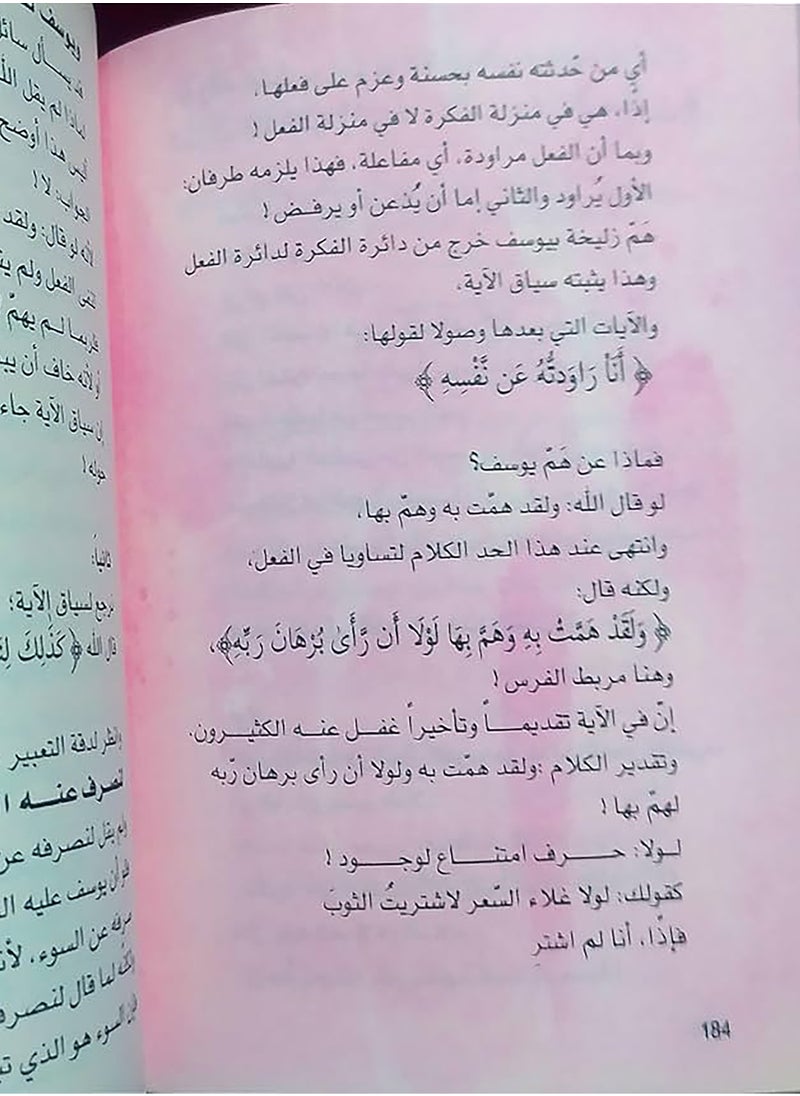 أي من حّدثته نفسه بحسنة وعزم على فعلها،
إذًا، هي في منزلة الفكرة لا في منزلة الفعل!
وبما أن الفعل مراودة، أي مفاعلة، فهذا يلزمه طرفان:
الأول يُراود والثاني إما أن يُذعن أو يرفض!
هَمّ زليخة بيوسف خرج من دائرة الفكرة لدائرة الفعل
وهذا يثبته سياق الآية،
والآيات التي بعدها وصولا لقولها:
﴿ أَنَا۠ رَاوَدتُّهُ عَن نَّفْسِهِ ﴾
فماذا عن هَمّ يوسف؟
لو قال الله: ولقد همّت به وهمّ بها،
وانتهى عند هذا الحد الكلام لتساويا في الفعل،
ولكنه قال:
﴿ وَلَقَدْ هَمَّتْ بِهِ وَهَمَّ بِهَا لَوْلَا أَن رَّأَىٰ بُرْهَانَ رَبِّهِ﴾،
وهنا مربط الفرس!
إنّ في الآية تقديمـــاً وتأخيراً غفــل عنـه الكثيـرون.
وتقدير الكلام :ولقد همّت به ولولا أن رأى برهان ربّه
لهمّ بها!
لــولا: حــــرف امتنــــاع لوجــــود!
كقولك: لولا غلاء السّعر لاشتريتُ الثوبَ
فإذًا، أنا لم اشترِ
184
قد يســأل سائل
لماذا لم يقل
أليس هذا أوضح
الجواب: لا!
لأنه لو قال: ولقد
الفعل ولم
فلربما لـم يهمّ
لأنه خاف أن
إن سياق الآية جاء
حوله!
ثانياً:
نرجع لسياق الآية؛
قال الله ﴿ كَذَٰلِكَ
وانظر لدقة التعبير
لنصرف عنـــه
ولم يقل لنصرفه عن
يوسف عليه
صرفه عن السوء،
ولكنّه لما قال لنصرف
السوء هو الذي